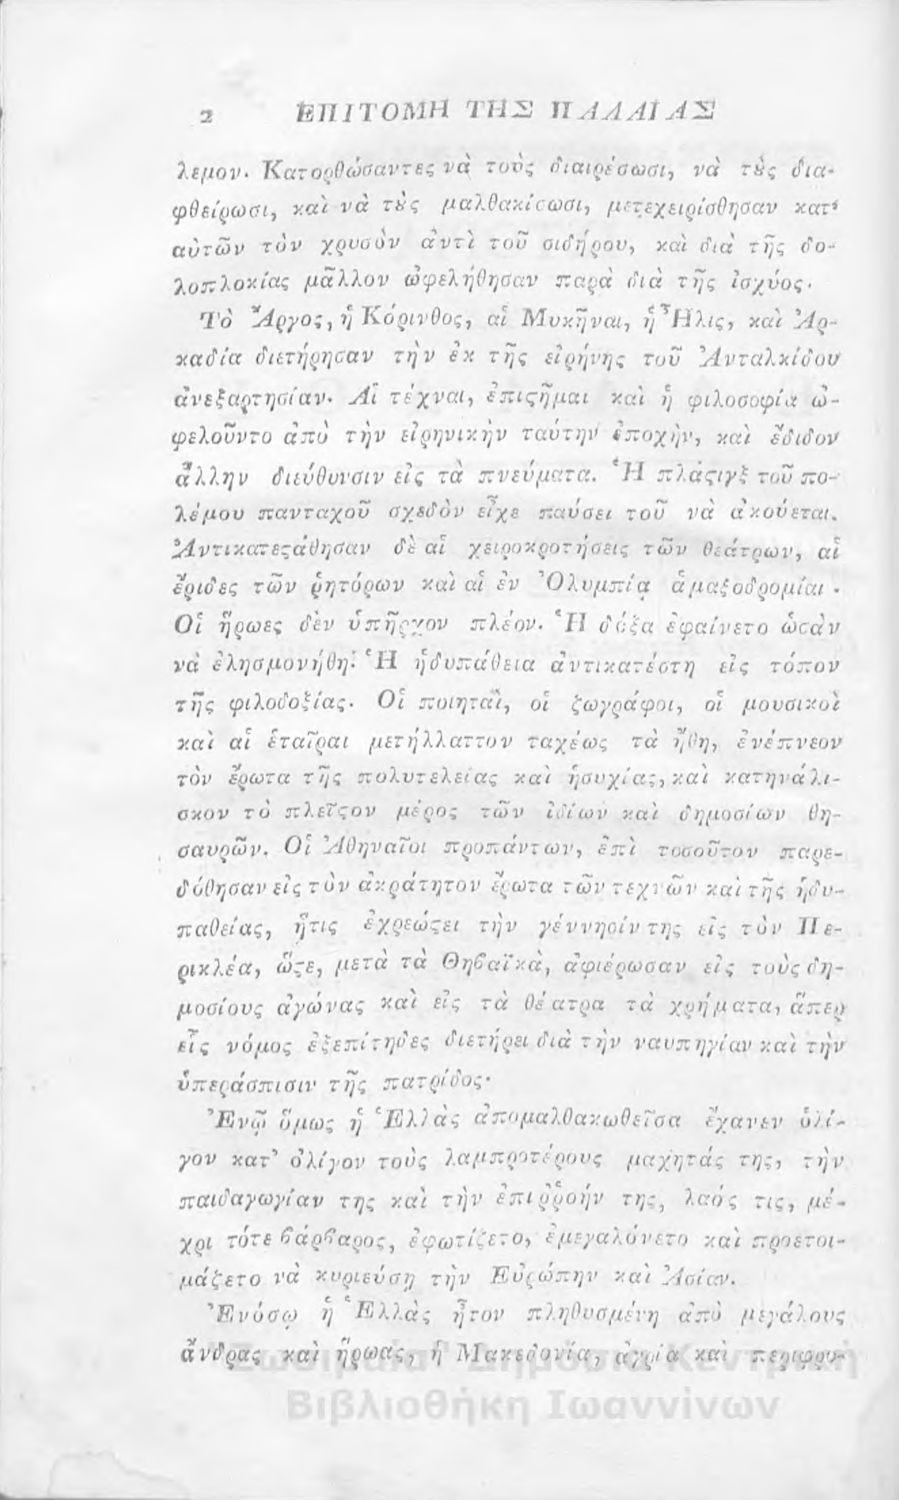 2 ἘΠΙΤΟΜΗ ΤΗΣ ΠΑΛΑΙΑΣ
λεμον. Κατορθώσαντες νὰ τοὺς διαιρέσωσι, νὰ τȣ̀ς δια-
φθείρωσι, καὶ νὰ τȣ̀ς μαλθακίσωσι, μετεχειρίσθησαν κατ'
αὐτῶν τὸν χρυσὸν ἀντὶ τοῦ σιδήρου, καὶ διὰ τῆς δο-
λοπλοκίας μᾶλλον ὠφελήθησαν παρὰ διὰ τῆς ἰσχύος·
Τὸ Ἄργος, ἡ Κόρινθος, αἱ Μυκῆναι, ἡ Ἦλις, καὶ Ἀρ-
καδία διετήρησαν τὴν ἐκ τῆς εἰρήνης τοῦ Ἀνταλκίδου
ἀνεξαρτησίαν· Αἱ τέχναι, ἐπιϛῆμαι καὶ ἡ φιλοσοφία ὠ-
φελοῦντο ἀπὸ τὴν εἰρηνικὴν ταύτην ἐποχὴν, καὶ ἔδιδον
ἄλλην διεύθυνσιν εἰς τὰ πνεύματα. Ἡ πλάϛιγξ τοῦ πο-
λέμου πανταχοῦ σχεδὸν εἶχε παύσει τοῦ νὰ ἀκούεται.
Ἀντικατεϛάθησαν δὲ αἱ χειροκροτήσεις τῶν θεάτρων, αἱ
ἔριδες τῶν ῥητόρων καὶ αἱ ἐν Ὀλυμπίᾳ ἁμαξοδρομίαι.
Οἱ ἥρωες δὲν ὑπῆρχον πλέον. Ἡ δόξα ἐφαίνετο ὡσὰν
νὰ ἐλησμονήθη. Ἡ ἡδυπάθεια ἀντικατέστη εἰς τόπον
τῆς φιλοδοξίας. Οἱ ποιηταὶ, οἱ ζωγράφοι, οἱ μουσικοὶ
καὶ αἱ ἑταῖραι μετήλλαττον ταχέως τὰ ἤθη, ἐνέπνεον
τὸν ἔρωτα τῆς πολυτελείας καὶ ἡσυχίας, καὶ κατηνάλι-
σκον τὸ πλεῖϛον μέρος τῶν ἰδίων καὶ δημοσίων θη-
σαυρῶν. Οἱ Ἀθηναῖοι προπάντων, ἐπὶ τοσοῦτον παρε-
δόθησαν εἰς τὸν ἀκράτητον ἔρωτα τῶν τεχνῶν καὶ τῆς ἡδυ-
παθείας, ἥτις ἐχρεώϛει τὴν γέννησίν της εἰς τὸν Πε-
ρικλέα, ὥϛε, μετὰ τὰ Θηβαϊκὰ, ἀφιέρωσαν εἰς τοὺς δη-
μοσίους ἀγώνας καὶ εἰς τὰ θέατρα τὰ χρήματα, ἅπερ
εἷς νόμος ἐξεπίτηδες διετήρει διὰ τὴν ναυπηγίαν καὶ τὴν
ὑπεράσπισιν τῆς πατρίδος·
Ἐνῷ ὅμως ἡ Ἑλλὰς ἀπομαλθακωθεῖσα ἔχανεν ὀλί-
γον κατ' ὀλίγον τοὺς λαμπροτέρους μαχητάς της, τὴν
παιδαγωγίαν της καὶ τὴν ἐπιῤῥοήν της, λαός τις, μέ-
χρι τότε βάρβαρος, ἐφωτίζετο, ἐμεγαλόνετο καὶ προετοι-
μάζετο νὰ κυριεύσῃ τὴν Εὐρώπην καὶ Ἀσίαν.
Ἐνόσῳ ἡ Ἑλλὰς ἦτον πληθυσμένη ἀπὸ μεγάλους
ἄνδρας καὶ ἥρωας, ἡ Μακεδονία, ἀγρία καὶ περιφρο-
Ζωσιμαία Δημόσια Κεντρική
Βιβλιοθήκη Ιωαννίνων